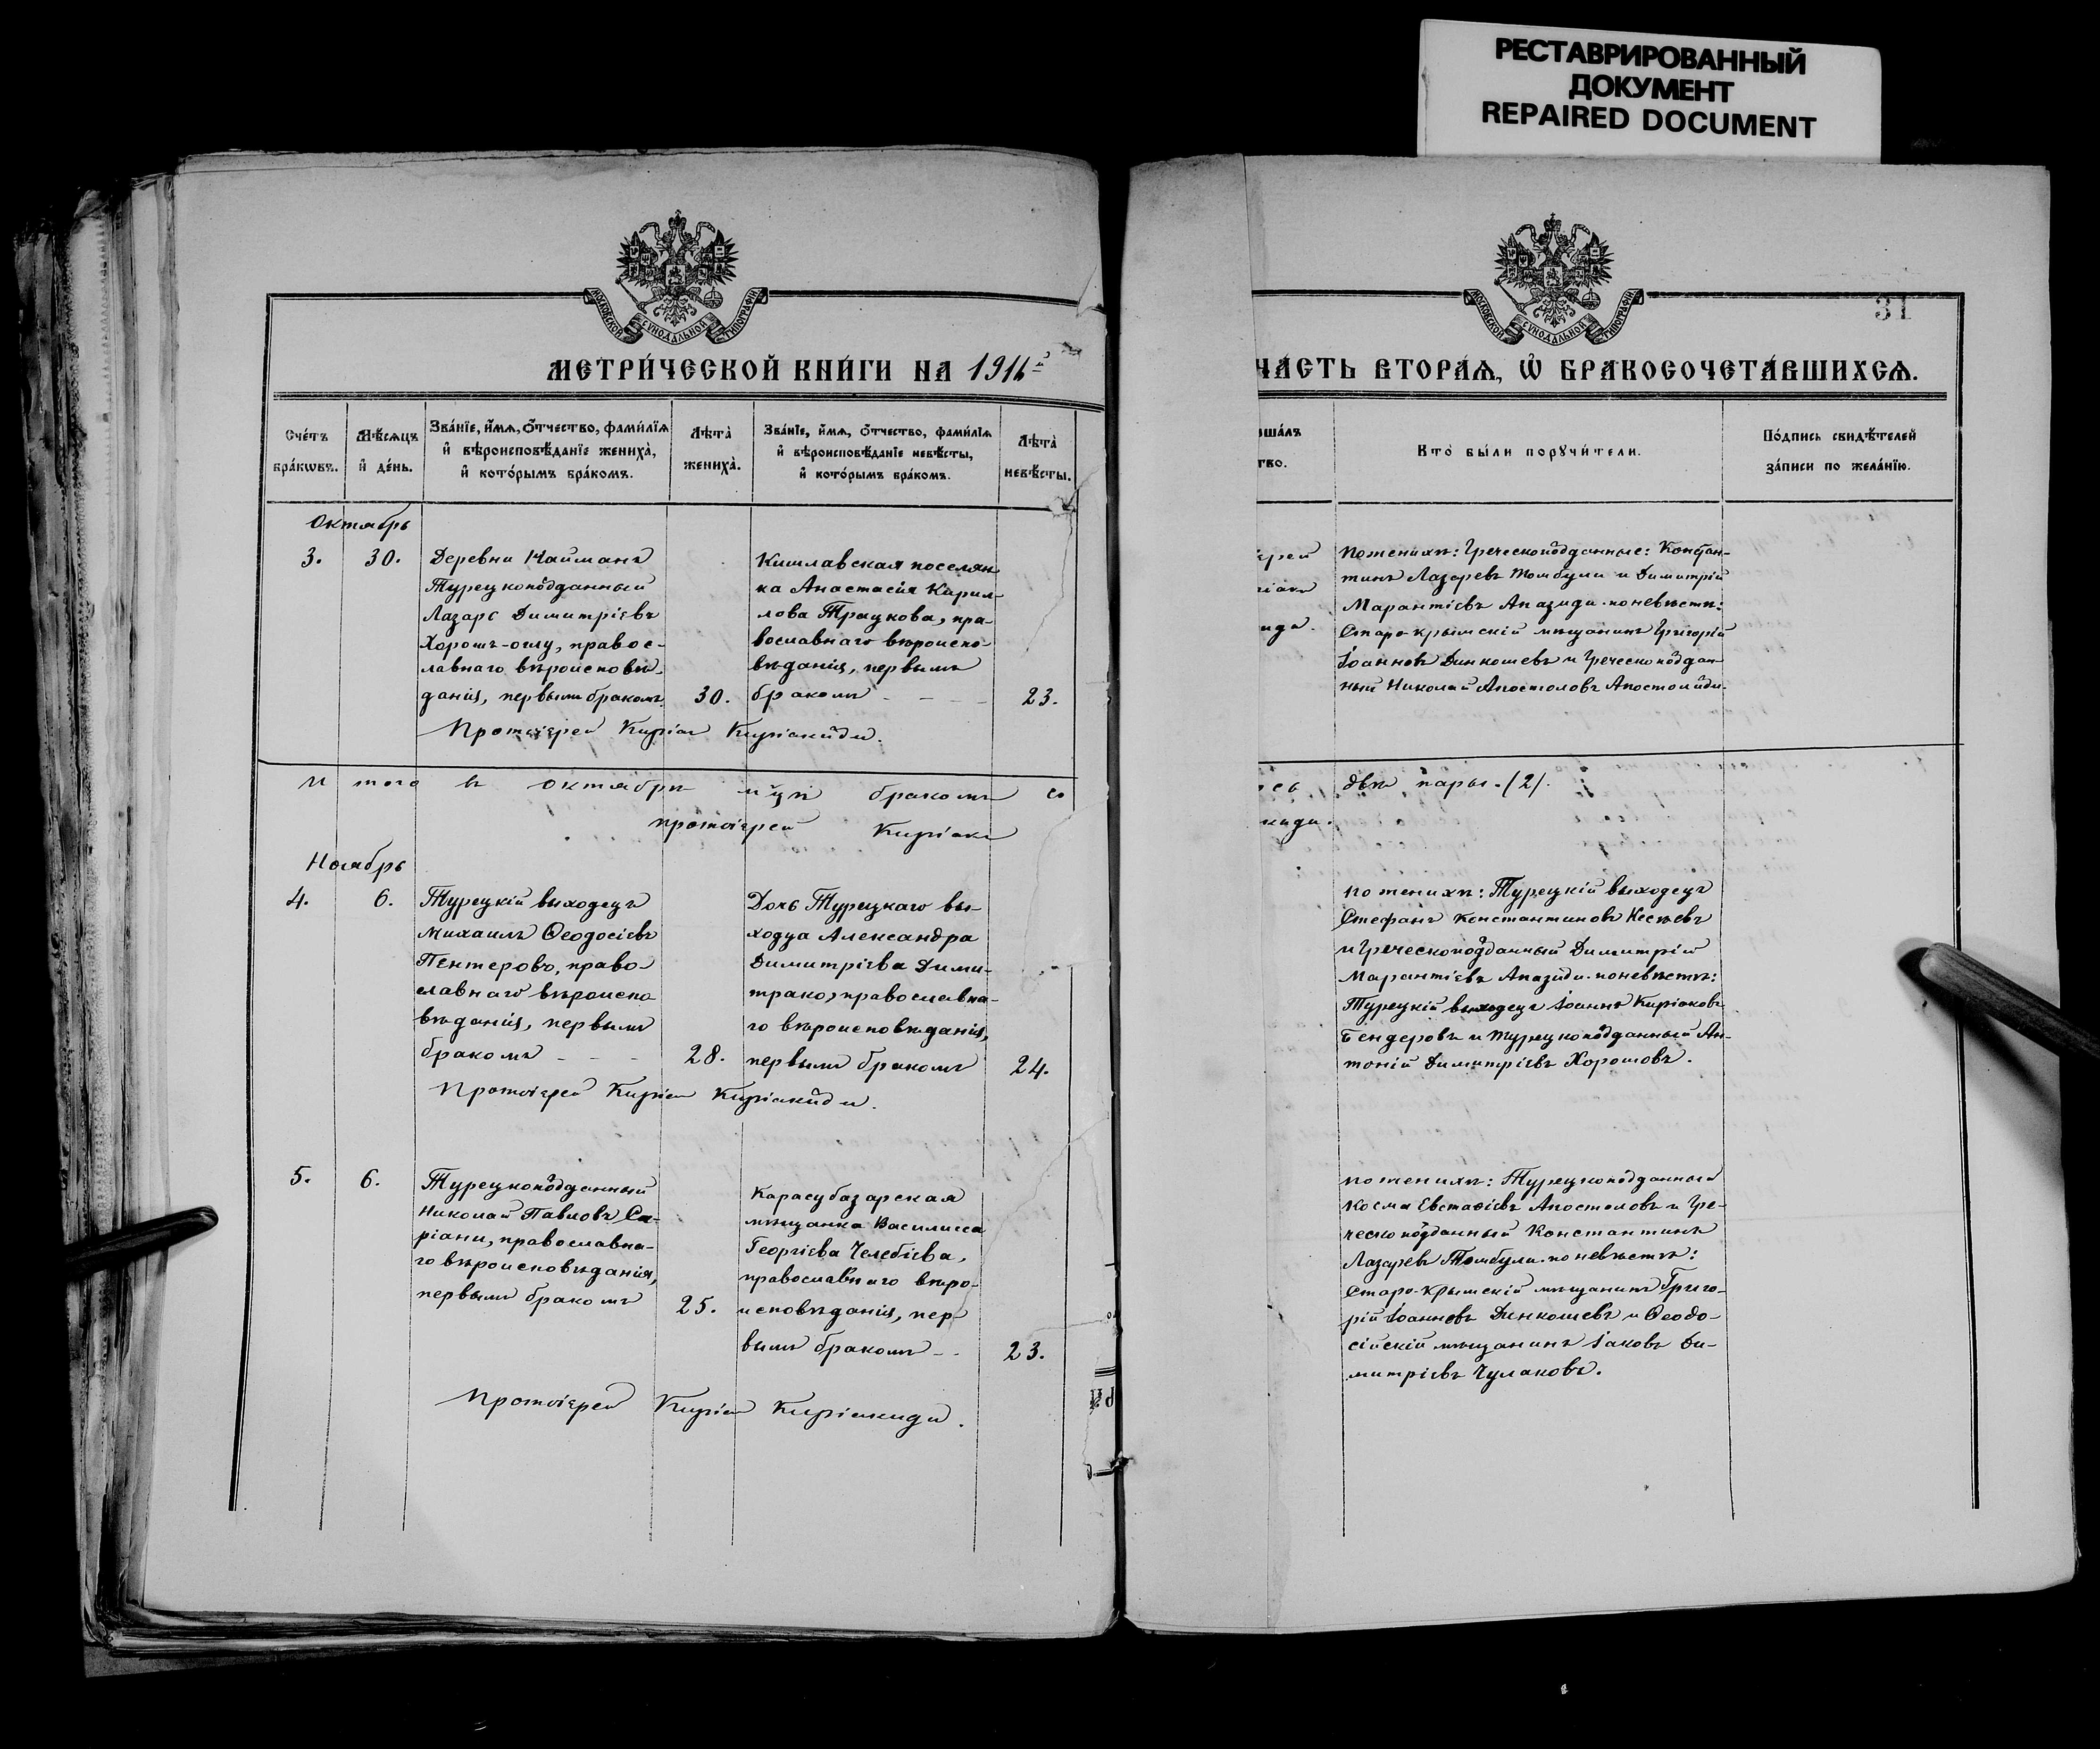 РЕСТАВРИРОВАННЫЙ
ДОКУМЕНТ
REPAIRED DOCUMENT
МОСКОВСКОЙ СѴНОДАЛЬНОЙ ТИПОГРАФІИ
МЕТРИ́ЧЕСКОЙ КНИ́ГИ НА 1916 г.
Сче́тъ бра́кѡвъ.
Мѣ́сѧцъ и҆ де́нь.
Зва́нїе, и҆́мѧ, ѻ҆́тчество, фами́лїѧ
и҆ вѣроисповѣ́данїе жениха̀,
и҆ кото́рымъ бра́комъ.
Лѣта̀ жениха̀.
Зва́нїе, и҆́мѧ, ѻ҆́тчество, фами́лїѧ
и҆ вѣроисповѣ́данїе невѣ́сты,
и҆ кото́рымъ бра́комъ.
Лѣта̀ невѣ́сты.
Октябрь
3. 30.
Деревни Найманъ
Турецкоподданный
Лазарь Димитріевъ
Хорошъ-оглу, правос-
лавнаго вѣроисповѣ-
данія, первымъ бракомъ
30.
Кишлавская поселян
ка Анастасія Кирил-
лова Трацкова, пра-
вославнаго вѣроиспо-
вѣданія, первымъ
бракомъ - - -
23.
Протоіерей Киріак Киріакиди.
Итого въ октябрѣ м-цѣ бракомъ со
протоіерей Киріакъ
Ноябрь
4. 6.
Турецкій выходецъ
Михаилъ Ѳеодосіевъ
Пентеровъ, право-
славнаго вѣроиспо
вѣданія, первымъ
бракомъ - - -
28.
Дочь Турецкаго вы-
ходца Александра
Димитріева Дими-
трако, православна-
го вѣроисповѣданія,
первымъ бракомъ
24.
Протоіерей Киріак Киріакиди.
5. 6.
Турецкоподданный
Николай Павловъ Са-
ріани, православна-
го вѣроисповѣданія,
первымъ бракомъ
25.
Карасубазарская
мѣщанка Василисса
Георгіева Челебіева,
православнаго вѣро-
исповѣданія, пер
вымъ бракомъ - -
23.
Протоіерей Киріак Киріакиди.
МОСКОВСКОЙ СѴНОДАЛЬНОЙ ТИПОГРАФІИ
31
ЧА́СТЬ ВТОРА́Ѧ, Ѽ БРАКОСОЧЕТА́ВШИХСѦ.
ша́лъ
тво.
Кто̀ бы́ли порꙋчи́тели.
По́дпись свидѣ́телей
за́писи по жела́нїю.
ерей
ріакъ
иди.
По женихѣ: Греческоподданные: Констан-
тинъ Лазаревъ Томбули и Димитрій
Марантіевъ Апазиди. по невѣстѣ:
Старо-крымскій мѣщанинъ Григорій
Іоанновъ Динкошевъ и Греческоподдан-
ный Николай Апостоловъ Апостолиди.
сь двѣ пары. (2).
киди.
По женихѣ: Турецкій выходецъ
Стефанъ Константиновъ Несѣевъ
и Греческоподданный Димитрій
Марантіевъ Апазиди. по невѣстѣ:
Турецкій выходецъ Іоаннъ Киріаковъ
Бендеровъ и Турецкоподданный Ан-
тоній Димитріевъ Хорошовъ.
По женихѣ: Турецкоподданный
Косма Евставіевъ Апостоловъ и Гре-
ческоподданный Константинъ
Лазаревъ Томбули. по невѣстѣ:
Старо-Крымскій мѣщанинъ Григо-
рій Іоанновъ Динкошевъ и Ѳеодо-
сійскій мѣщанинъ Іаковъ Ди-
митріевъ Чулаковъ.